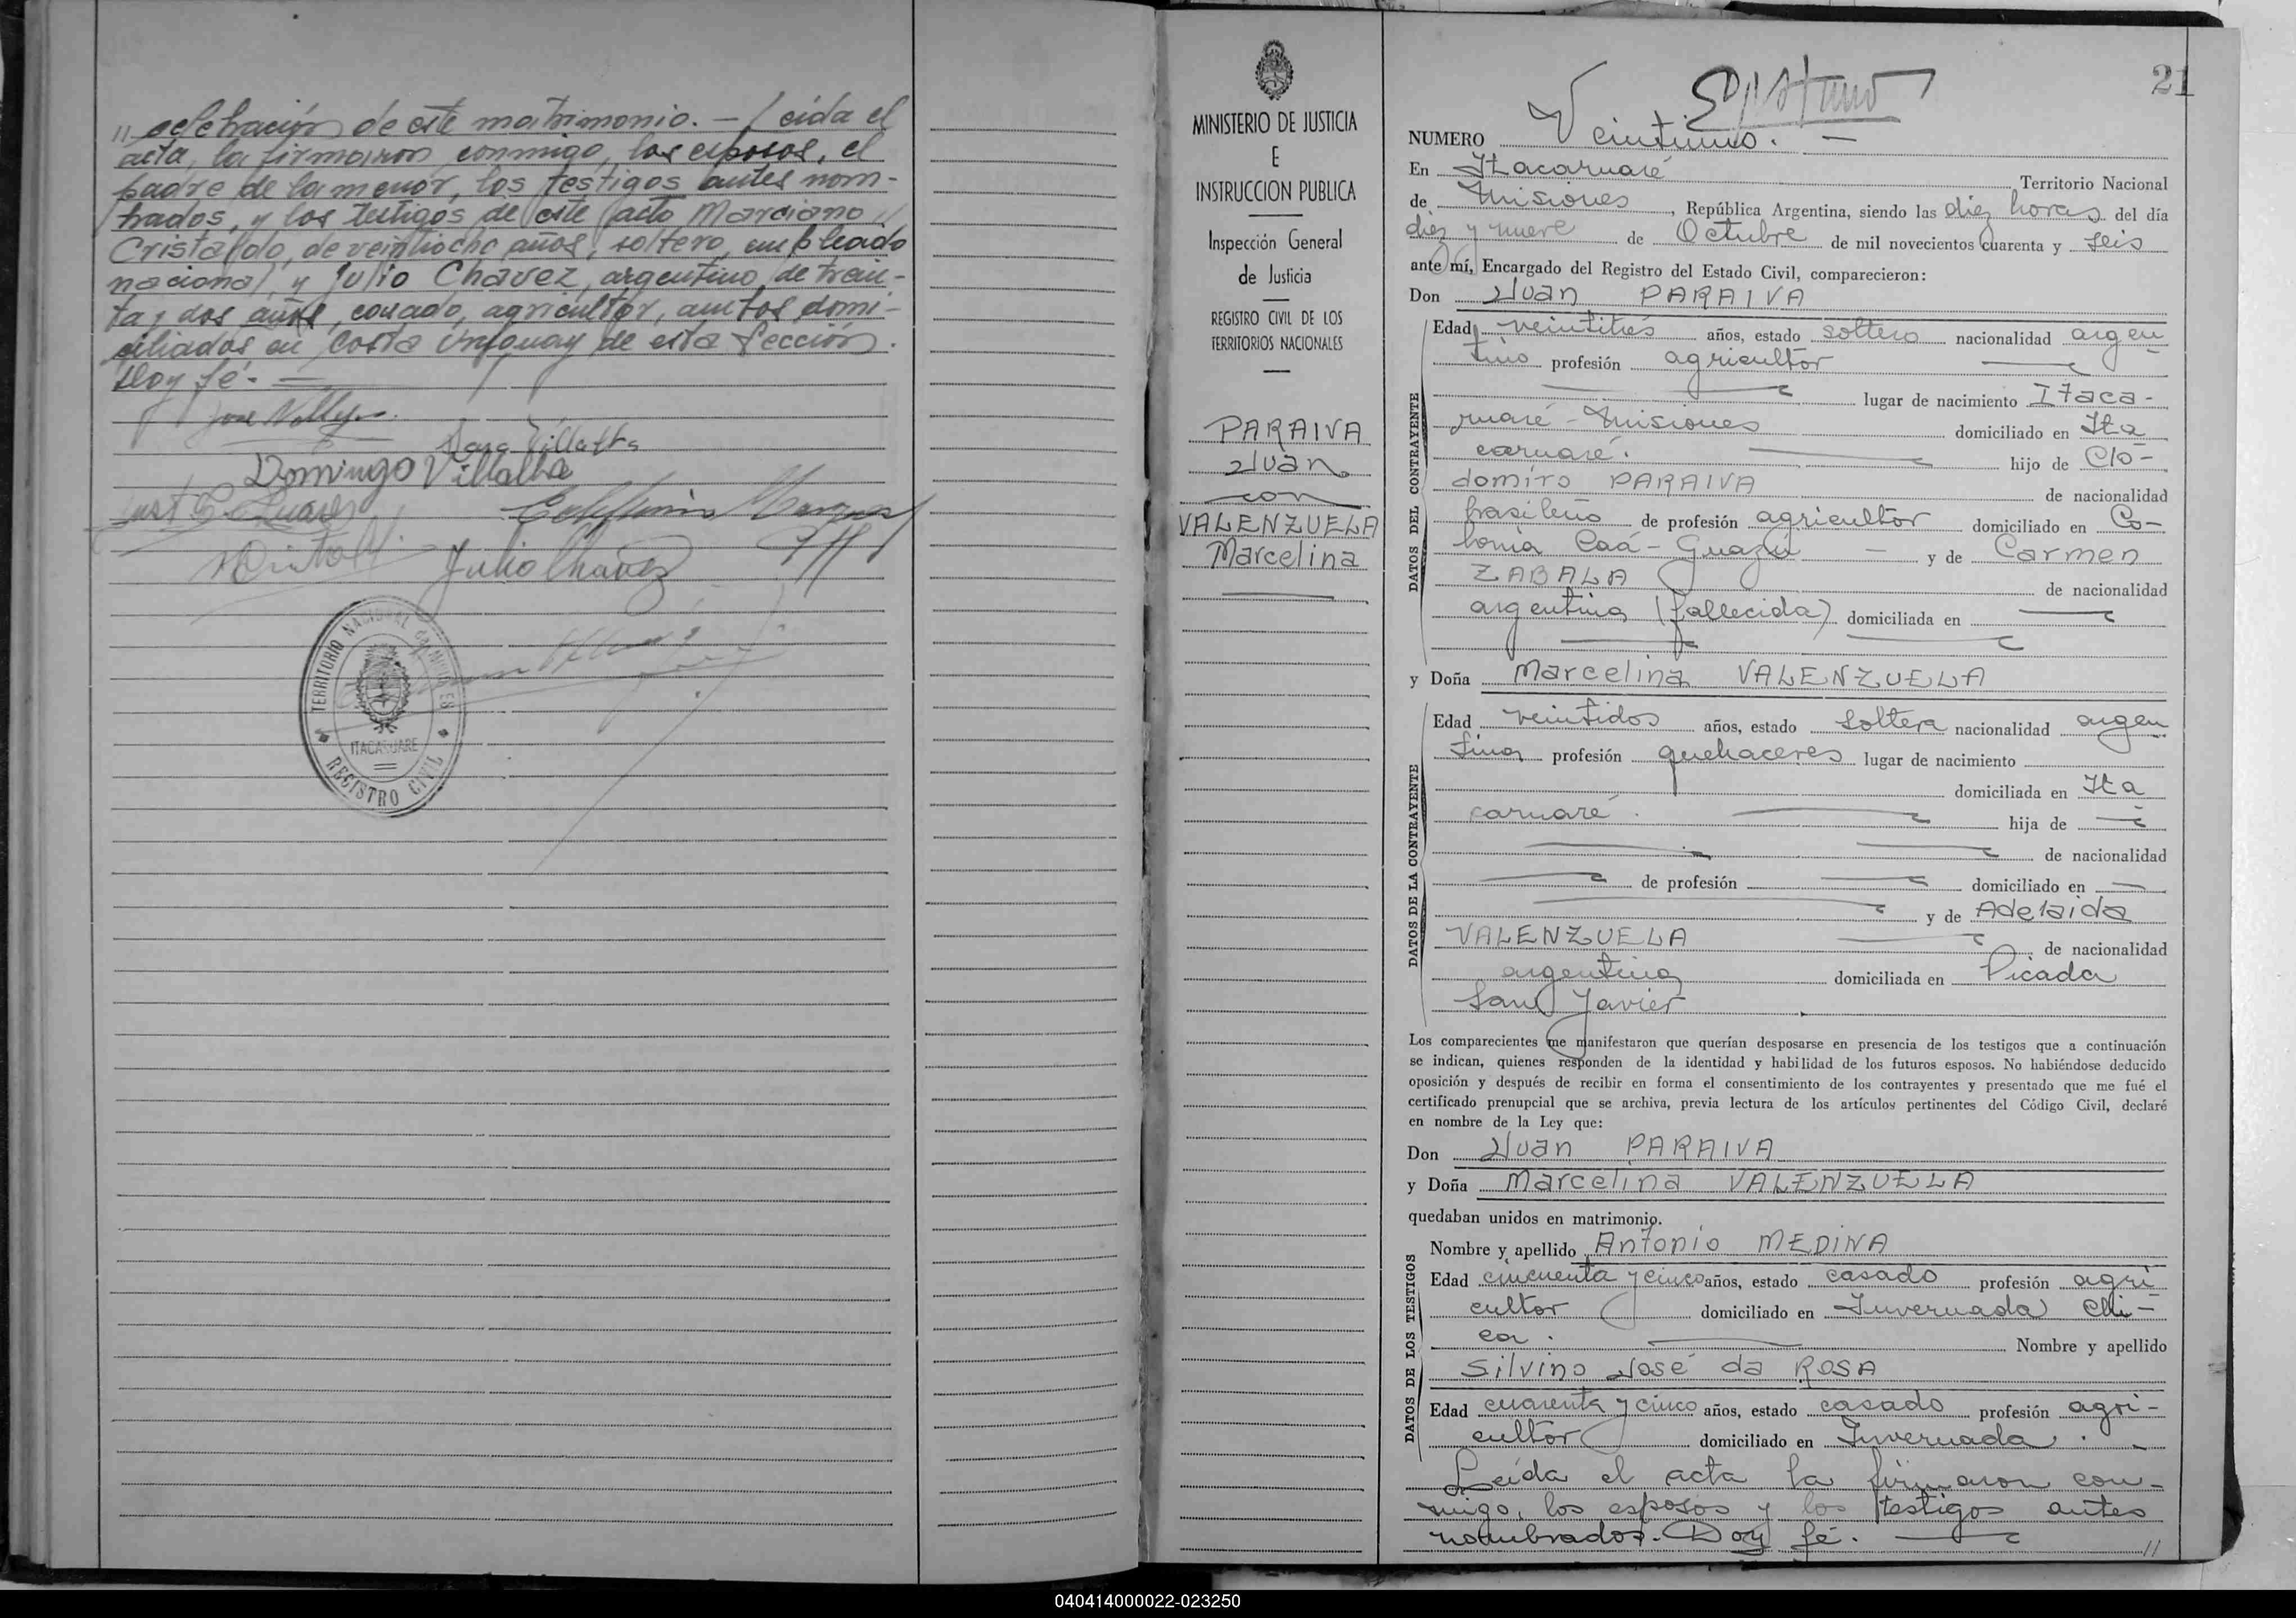 // celebración de este matrimonio. — Leída el
acta, la firmaron conmigo, los esposos, el
padre de la menor, los testigos antes nom-
brados, y los testigos de este acto Marciano
Cristaldo, de veintiocho años, soltero, empleado
nacional, y Julio Chavez, argentino, de trein-
ta y dos años, casado, agricultor, ambos domi-
ciliados en Costa Uruguay de esta Sección.
Doy fé. —
Jose Vallejo
Sara Villalba
Domingo Villalba
Julio Chavez
TERRITORIO NACIONAL de MISIONES
ITACARUARE
REGISTRO CIVIL
21
MINISTERIO DE JUSTICIA
E
INSTRUCCION PUBLICA
Inspección General
de Justicia
REGISTRO CIVIL DE LOS
TERRITORIOS NACIONALES
PARAIVA
Juan
con
VALENZUELA
Marcelina
NUMERO Veintiuno. —
En Itacaruaré Territorio Nacional
de Misiones, República Argentina, siendo las diez horas del día
diez y nueve de Octubre de mil novecientos cuarenta y seis
ante mí, Encargado del Registro del Estado Civil, comparecieron:
Don Juan PARAIVA
DATOS DEL CONTRAYENTE
Edad veintitrés años, estado soltero nacionalidad argen
tino profesión agricultor
lugar de nacimiento Itaca-
ruaré - Misiones domiciliado en Ita
caruaré. hijo de Clo-
domiro PARAIVA de nacionalidad
brasileño de profesión agricultor domiciliado en Co-
lonia Caá-Guazú — y de Carmen
ZABALA de nacionalidad
argentina (fallecida) domiciliada en
y Doña Marcelina VALENZUELA
DATOS DE LA CONTRAYENTE
Edad veintidos años, estado soltera nacionalidad argen
tina profesión quehaceres lugar de nacimiento
domiciliada en Ita
caruaré. hija de
de nacionalidad
de profesión domiciliado en
y de Adelaida
VALENZUELA de nacionalidad
argentina domiciliada en Picada
San Javier
Los comparecientes me manifestaron que querían desposarse en presencia de los testigos que a continuación
se indican, quienes responden de la identidad y habilidad de los futuros esposos. No habiéndose deducido
oposición y después de recibir en forma el consentimiento de los contrayentes y presentado que me fué el
certificado prenupcial que se archiva, previa lectura de los artículos pertinentes del Código Civil, declaré
en nombre de la Ley que:
Don Juan PARAIVA
y Doña Marcelina VALENZUELA
quedaban unidos en matrimonio.
DATOS DE LOS TESTIGOS
Nombre y apellido Antonio MEDINA
Edad cincuenta y cinco años, estado casado profesión agri
cultor domiciliado en Invernada Chi-
ca. Nombre y apellido
Silvino José da ROSA
Edad cuarenta y cinco años, estado casado profesión agri-
cultor domiciliado en Invernada.
Leída el acta la firmaron con-
migo, los esposos y los testigos antes
nombrados. Doy fé. —
//
040414000022-023250